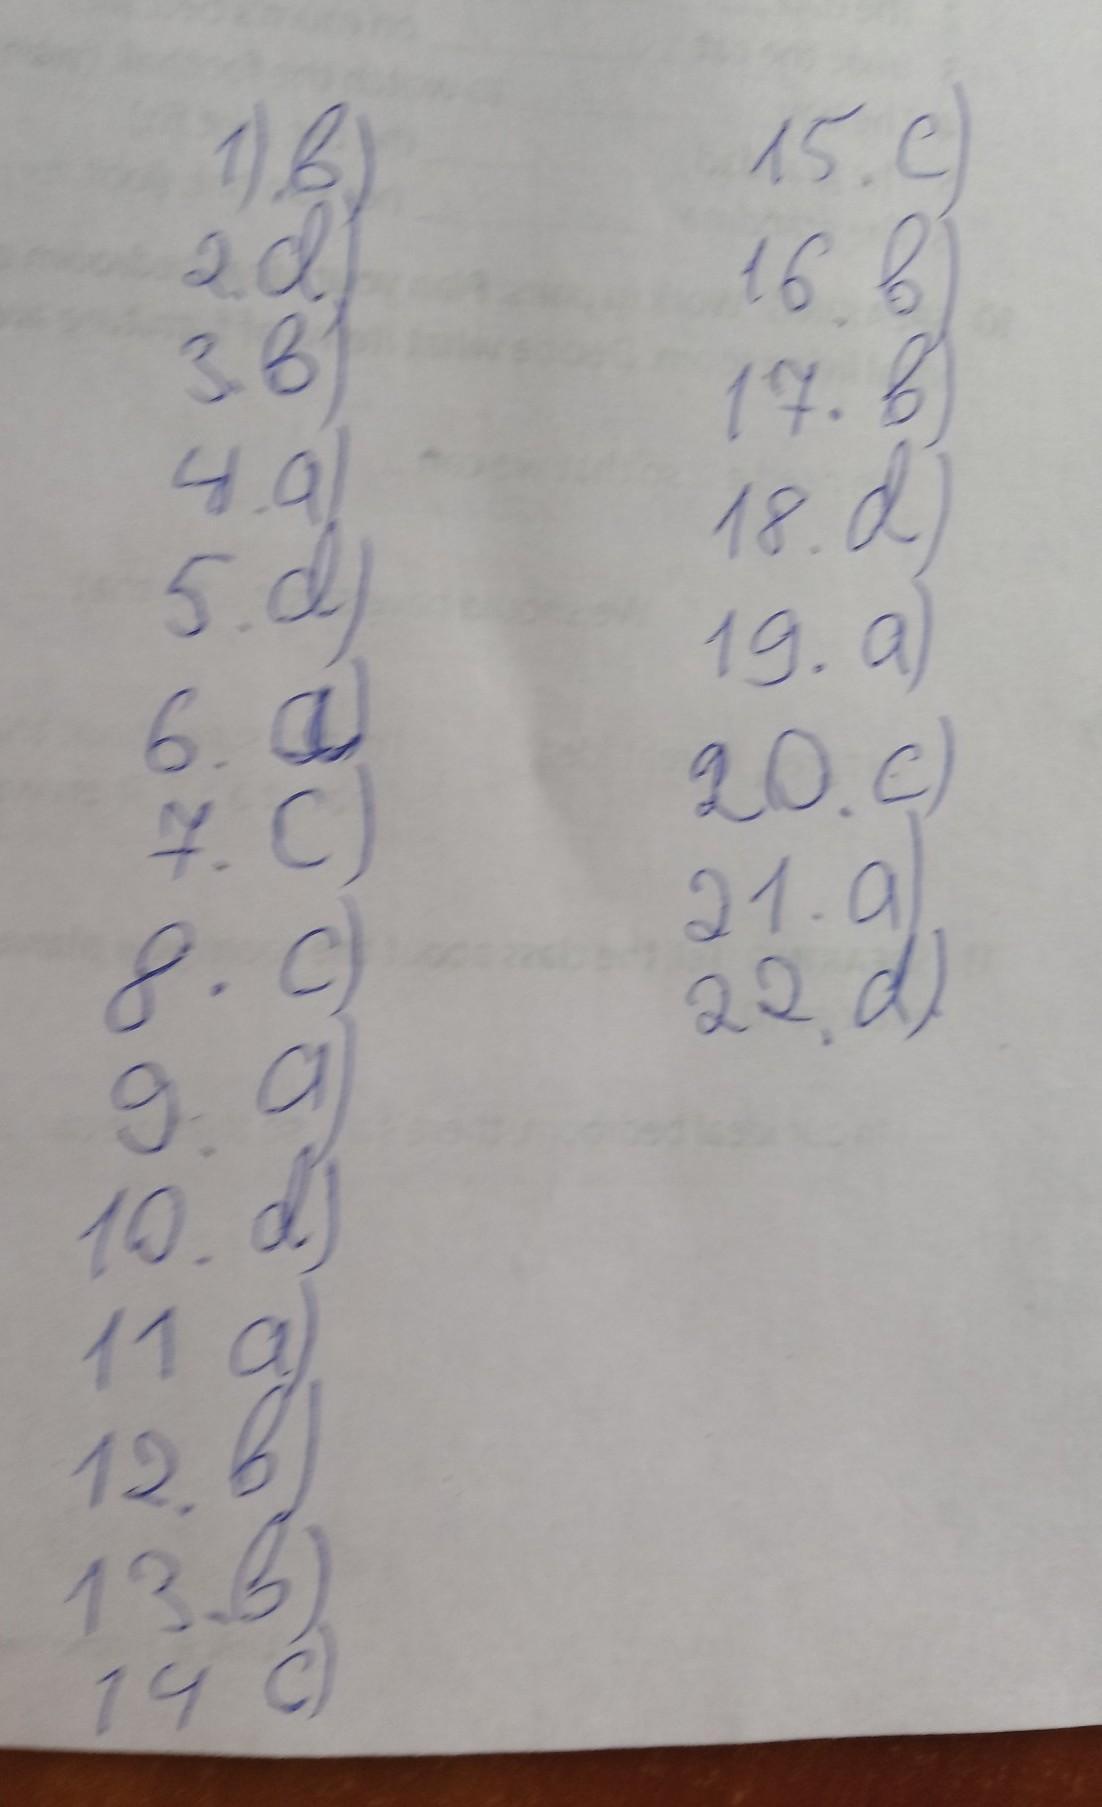 1).b)
2.d)
3.b)
4.a)
5.d)
6.a)
7.c)
8.c)
9.a)
10.d)
11 a)
12.b)
13.b)
14 c)
15.c)
16.b)
17.b)
18.d)
19.a)
20.c)
21.a)
22.d)